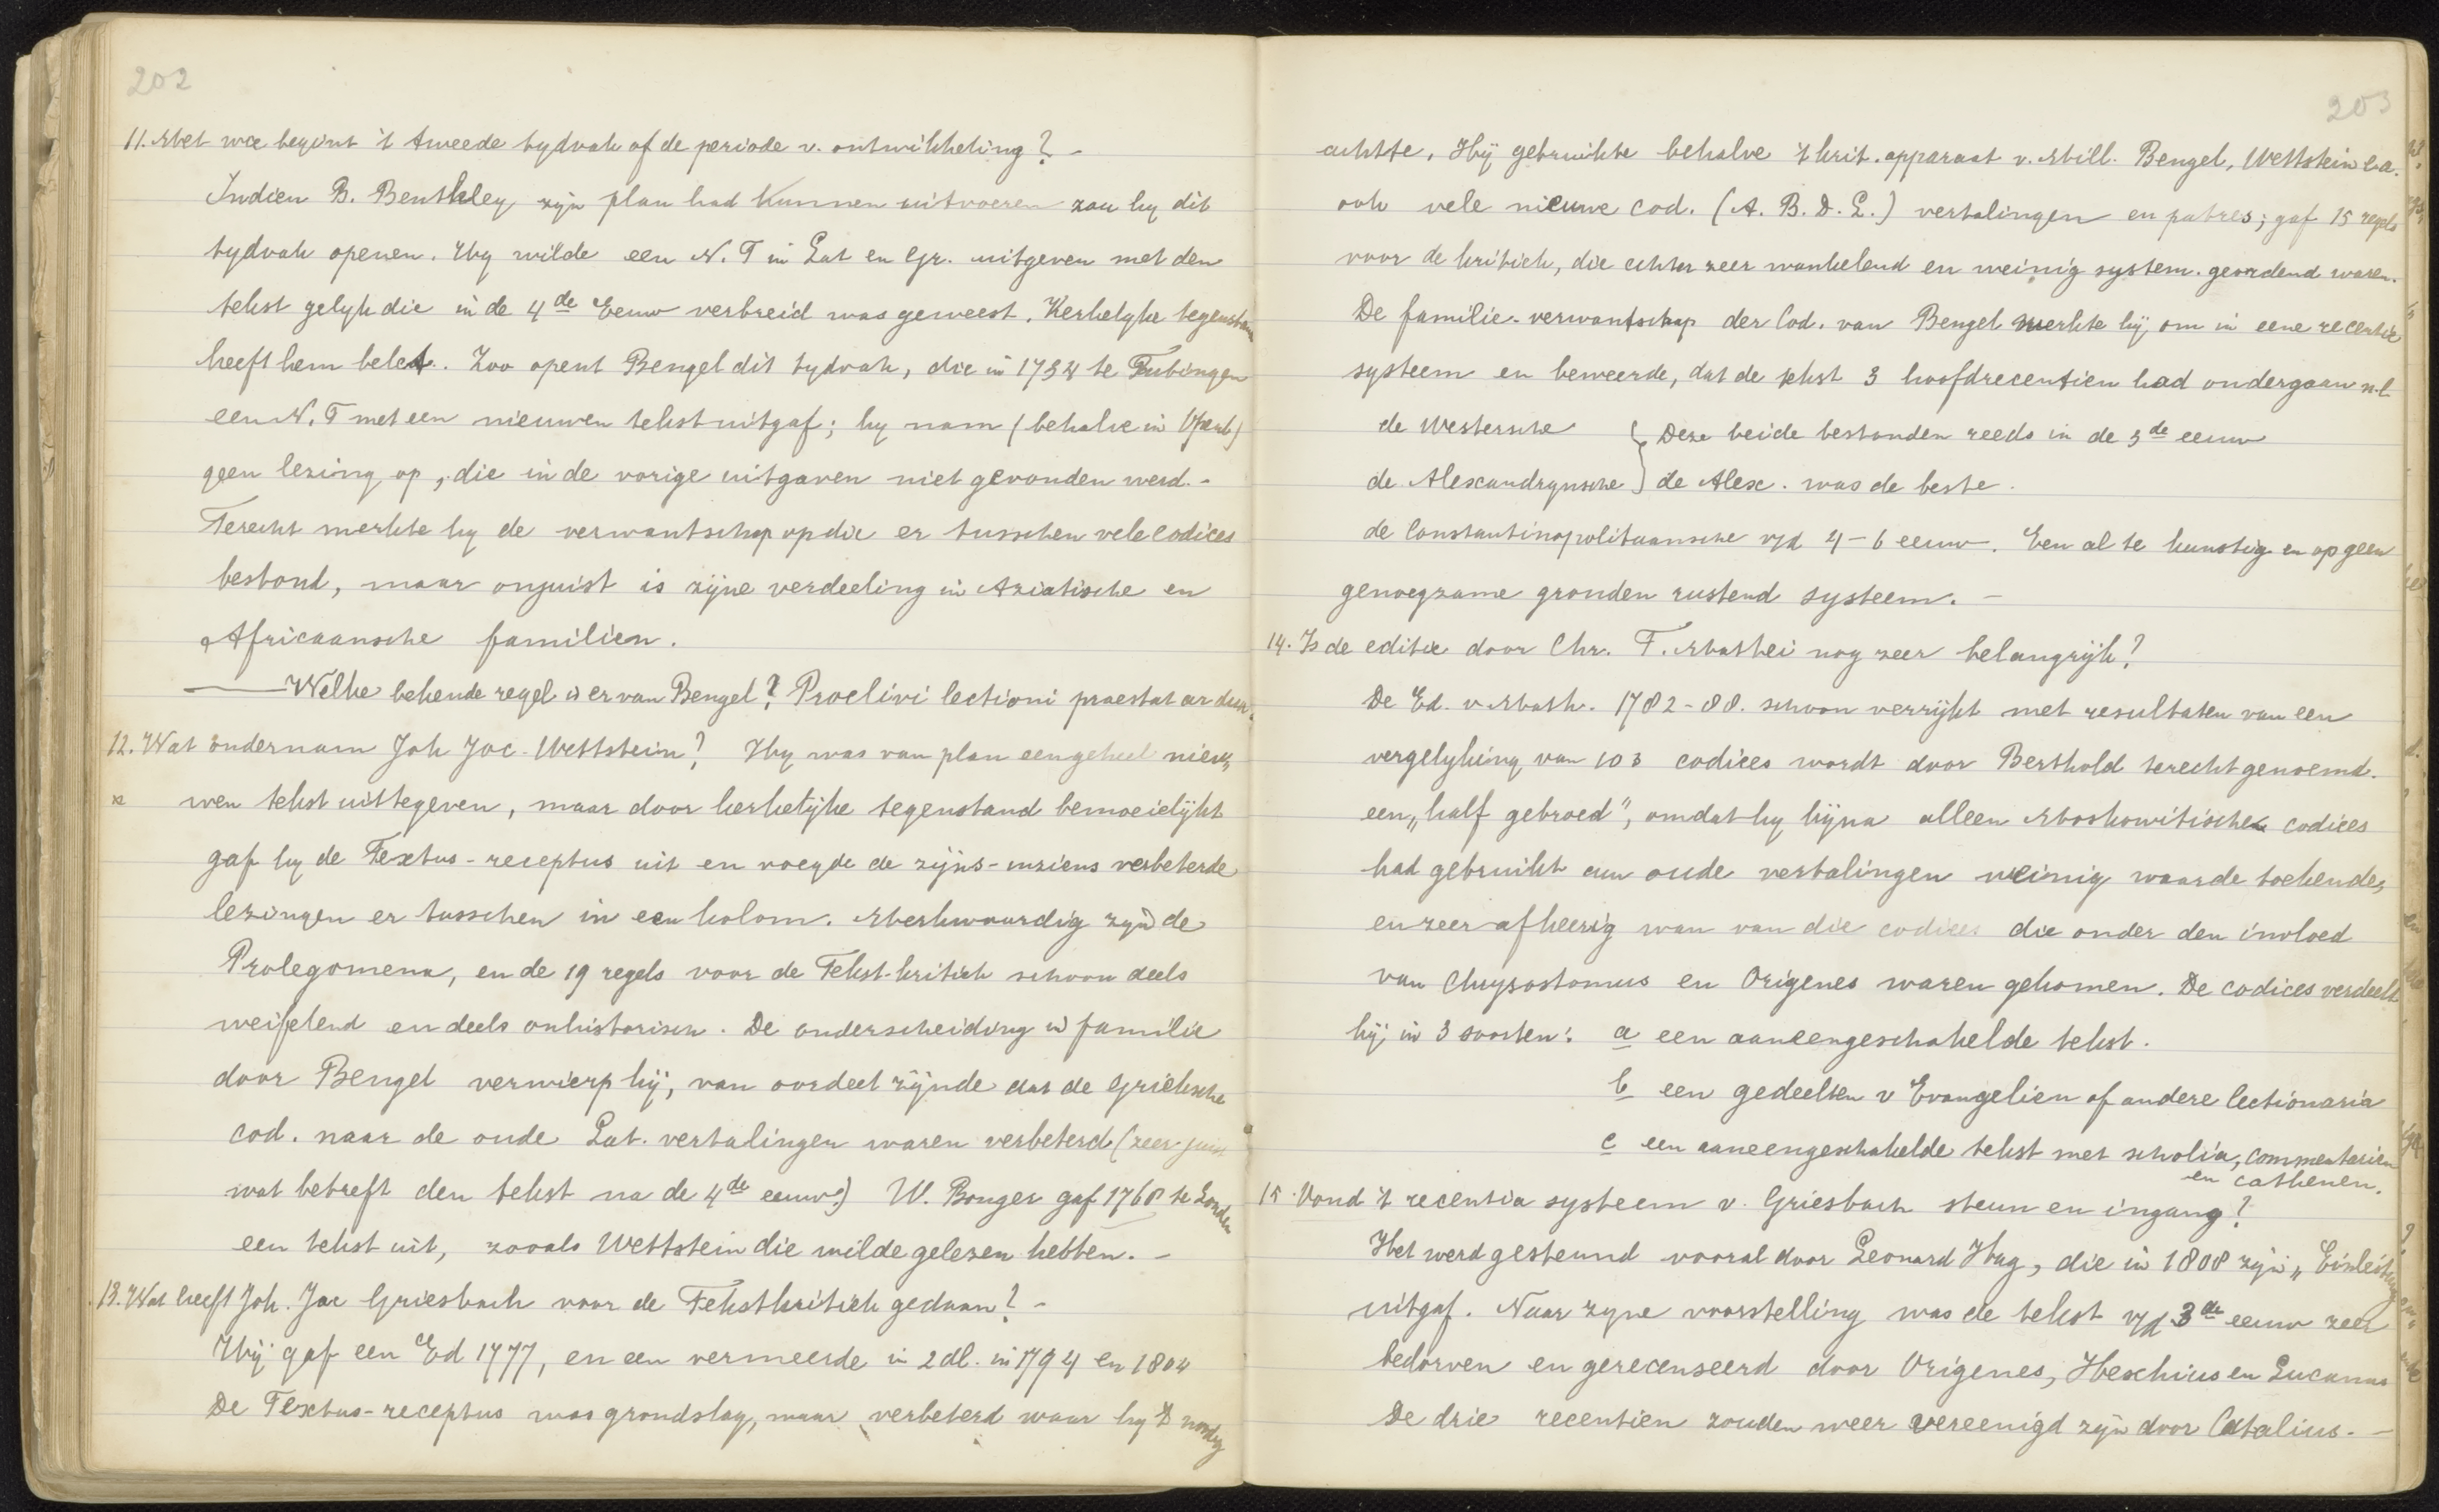 202
11. Met wie begint 't tweede tydvak of de periode v. ontwikkeling? -
Indien B. Benthley zijn plan had kunnen uitvoeren zou hy dit
tydvak openen. Hy wilde een N. T in Lat en Gr. uitgeven met den
tekst gelyk die in de 4de Eeuw verbreid was geweest. Kerkelyke tegenstand
heeft hem belet. Zoo opent Bengel dit tydvak, die in 1734 te Tubingen
een N. T met een nieuwen tekst uitgaf; hy nam (behalve in Openb)
geen lezing op, die in de vorige uitgaven niet gevonden werd. -
Terecht merkte hy de verwantschap op die er tusschen vele codices
bestond, maar onjuist is zijne verdeeling in Aziatische en
Africaansche familien.
Welke bekende regel is er van Bengel? Proclivi lectioni praestat ardua.
12. Wat ondernam Joh Jac. Wettstein? Hy was van plan een geheel nieu„
wen tekst uittegeven, maar door kerkelijke tegenstand bemoeielijkt
gaf hy de Textus-receptus uit en voegde de zijns-inziens verbeterde
lezingen er tusschen in een kolom. Merkwaardig zijn de
Prolegomena, en de 19 regels voor de Tekst-kritiek schoon deels
weifelend en deels onhistorisch. De onderscheiding in familie
door Bengel verwierp hij, van oordeel zijnde dat de Grieksche
cod. naar de oude Lat. vertalingen waren verbeterd (zeer juist
wat betreft den tekst na de 4de eeuw.) W. Bouger gaf 1768 te Londen
een tekst uit, zooals Wettstein die wilde gelezen hebben. -
13. Wat heeft Joh. Jac Griesbach voor de Tekstkritiek gedaan? -
Hij gaf een Ed 1777, en een vermeerde in 2 dl. in 1794 en 1804
De Textus-receptus was grondslag, maar verbeterd waar hy 't nodig
203
achtte. Hij gebruikte behalve 't krit. apparaat v. Mill. Bengel, Wettstein e.a.
ook vele nieuwe cod. (A. B. D. L.) vertalingen en patres; gaf 15 regels
voor de kritiek, die echter zeer wankelend en weinig system. geordend waren.
De familie-verwantschap der Cod. van Bengel werkte hij om in eene recentie
systeem en beweerde, dat de tekst 3 hoofdrecentien had ondergaan n.l.
de Westersche } Deze beide bestonden reeds in de 3de eeuw
de Alexandrynsche } de Alex. was de beste.
de Constantinopolitaansche v/d 4-6 eeuw. Een al te kunstig en op geen
genoegzame gronden rustend systeem. -
14. Is de editie door Chr. F. Mathei nog zeer belangrijk?
De Ed. v Math. 1782-88. schoon verrijkt met resultaten van een
vergelyking van 103 codices wordt door Berthold terecht genoemd.
een „half gebroed”, omdat hy bijna alleen Moskowitische codices
had gebruikt aan oude vertalingen weinig waarde toekende,
en zeer afkeerig wan van die codices die onder den invloed
van Chrysostomus en Origenes waren gekomen. De codices verdeelt
hij in 3 soorten: a een aaneengeschakelde tekst.
b een gedeelten v Evangelien of andere lectionaria
c een aaneengeschakelde tekst met scholia, commentarien
en cathenen.
15. Vond 't recentia systeem v. Griesbach steun en ingang?
Het werd gesteund vooral door Leonard Hug, die in 1808 zijn „Einleitung
uitgaf. Naar zyne voorstelling was de tekst v/d 3de eeuw zeer
bedorven en gerecenseerd door Origenes, Hexchius en Lucanus
De drie recentien zouden weer vereenigd zijn door Catalius. -